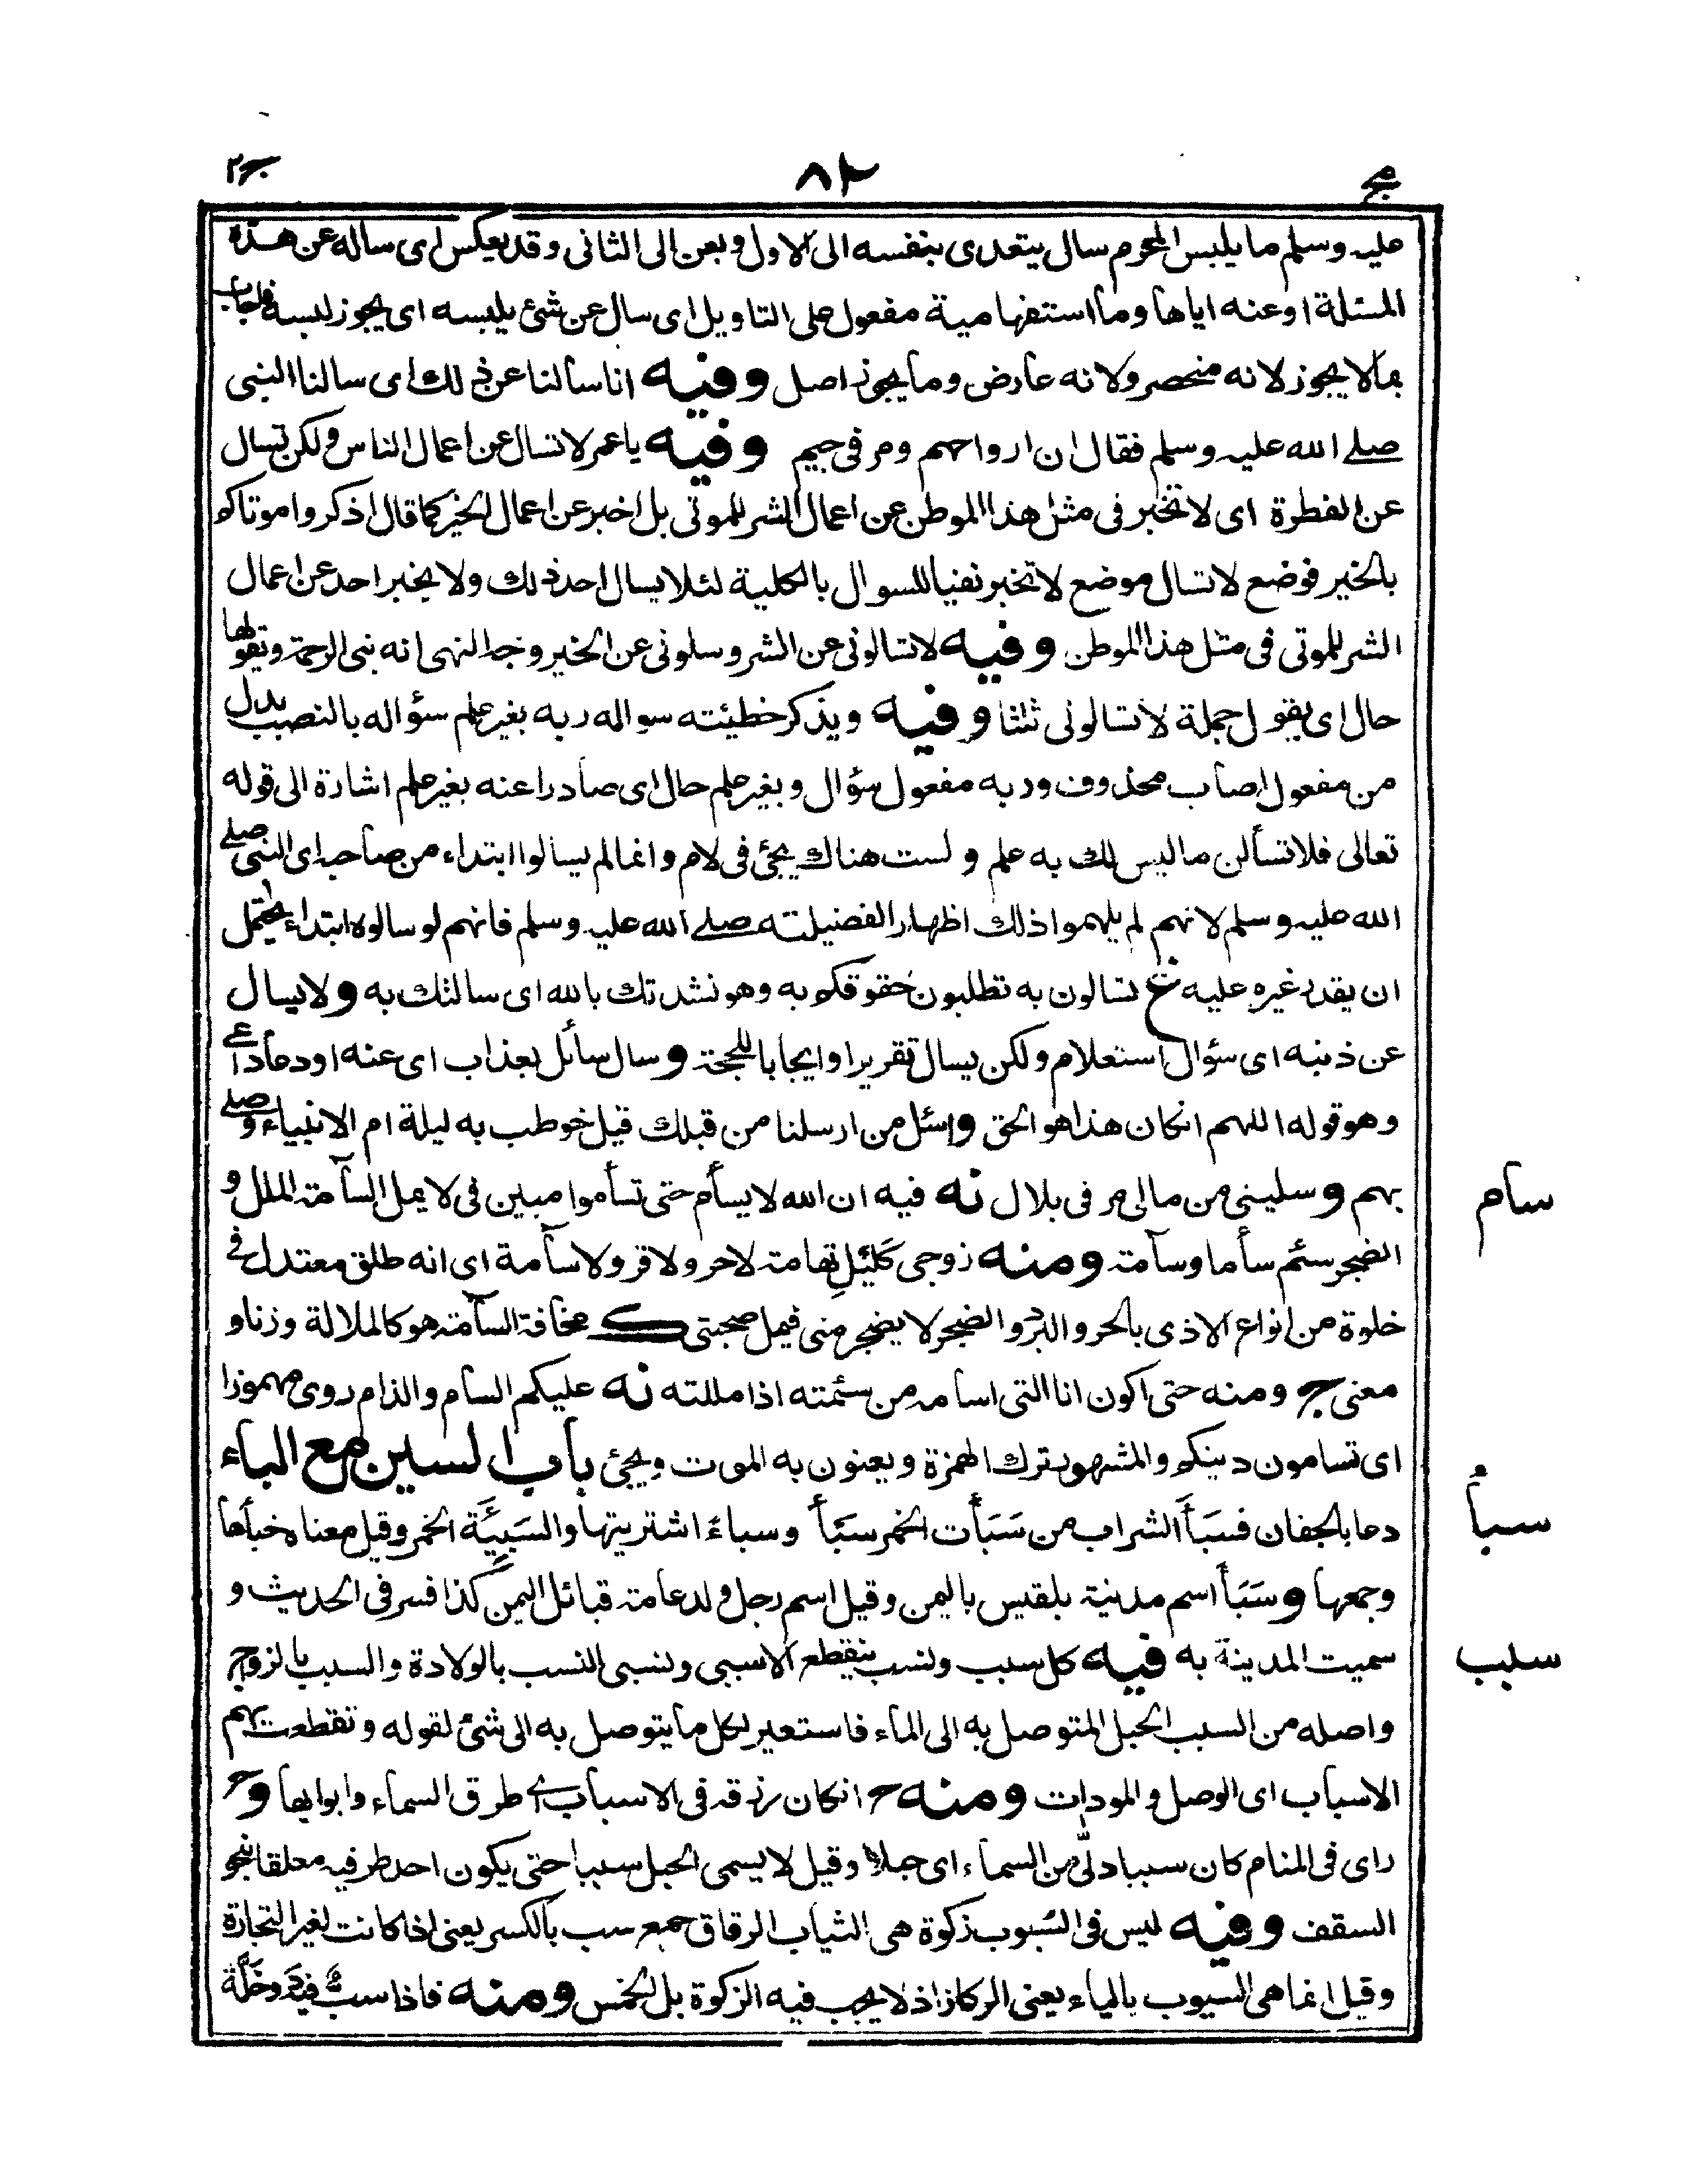 مج
٨٢
ج٢
عليه وسلم ما يلبس المحرم سال يتعدى بنفسه الى الاول وبعن الى الثانى وقد يعكس اى ساله عن هذه
المسئلة او عنه اياها وما استفهامية مفعول على التاويل اى سال عن شئ يلبسه اى يجوز لبسه فاجاب
بمالا يجوز لانه منحصر ولانه عارض وما يجوز اصل وفيه انا سالنا عن ذلك اى سالنا النبى
صلى الله عليه وسلم فقال ان ارواحهم ومر فى جيم وفيه يا عمر لا تسال عن اعمال الناس ولكن تسال
عن الفطرة اى لا تخبر فى مثل هذا الموطن عن اعمال الشر للموتى بل اخبر عن اعمال الخير كما قال اذكروا موتاكم
بالخير فوضع لا تسال موضع لا تخبر نفيا للسوال بالكلية لئلا يسال احد ذلك ولا يخبر احد عن اعمال
الشر للموتى فى مثل هذا الموطن وفيه لا تسالونى عن الشر وسلونى عن الخير وجه النهى انه نبى الرحمة ويقولها
حال اى يقول جملة لا تسالونى ثلثا وفيه ويذكر خطيئته سواله ربه بغير علم سؤاله بالنصب بدل
من مفعول اصاب محذوف وربه مفعول سؤال وبغير علم حال اى صادرا عنه بغير علم اشارة الى قوله
تعالى فلا تسألن ما ليس لك به علم و لست هناك يجئ فى لام وانما لم يسالوا ابتداء من صاحبه اى النبى صلى
الله عليه وسلم لانهم لم يلهموا ذلك اظهارا لفضيلته صلى الله عليه وسلم فانهم لو سالوه ابتداء يحتمل
ان يقدر غيره عليه غ تسالون به تطلبون حقوقكم به وهو نشدتك بالله اى سالتك به ولا يسال
عن ذنبه اى سؤال استعلام ولكن يسال تقريرا وايجابا للحجة وسال سائل بعذاب اى عنه او دعا داع
وهو قوله اللهم انكان هذا هو الحق واسئل من ارسلنا من قبلك قيل خوطب به ليلة ام الانبياء وصلى
بهم وسلينى من مالى مر فى بلال نه فيه ان الله لا يسأم حتى تسأموا مبين فى لا يمل السآمة الملل و
الضجر سئم سأما وسآمة ومنه زوجى كَلَيْل تهامة لا حر ولا قر ولا سآمة اى انه طلق معتدل فى
خلوة من انواع الاذى بالحر والبرد والضجر لا يضجر منى فيمل صحبتى ك مخافة السآمة هو كالملالة وزنا و
معنى ج ومنه حتى اكون انا التى اسامه من سئمته اذا مللته نه عليكم السام والذام روى مهموزا
اى تسامون دينكم والمشهور ترك الهمزة ويعنون به الموت ويجئ باب السين مع الباء
دعا بالجفان فسَبَأَ الشراب من سَبَأت الخمر سَبَأً وسباءً اشتريتها والسَبِيْئَة الخمر وقيل معناه خبأها
وجمعها وسَبَأ اسم مدينة بلقيس باليمن وقيل اسم رجل ولد عامة قبائل اليمن كذا فسر فى الحديث و
سميت المدينة به فيه كل سبب ونسب ينقطع الا سببى ونسبى النسب بالولادة والسبب بالزواج
واصله من السبب الحبل المتوصل به الى الماء فاستعير لكل ما يتوصل به الى شئ لقوله وتقطعت بهم
الاسباب اى الوصل والمودات ومنه ح انكان رزقه فى الاسباب اى طرق السماء وابوابها وح
راى فى المنام كان سببا دلّى من السماء اى حبلا وقيل لا يسمى الحبل سببا حتى يكون احد طرفيه معلقا بنحو
السقف وفيه ليس فى السُبوب زكوة هى الثياب الرقاق جمع سب بالكسر يعنى اذا كانت لغير التجارة
وقيل انما هى السيوب بالياء يعنى الركاز اذ لا يجب فيه الزكوة بل الخمس ومنه فاذا سب فيه دَوْخَلّة
سام
سبأ
سبب